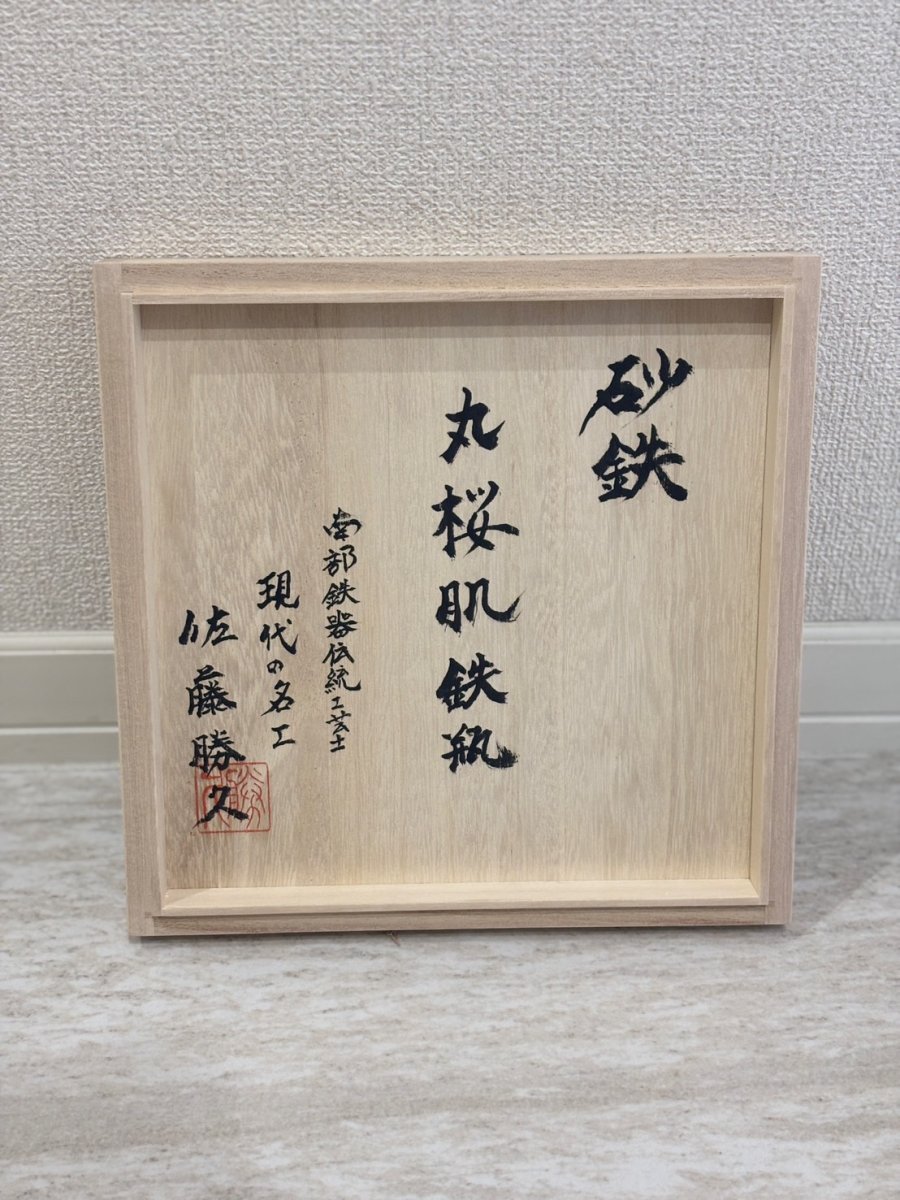 砂鉄
丸桜肌鉄瓶
南部鉄器伝統工芸士
現代の名工
佐藤勝久